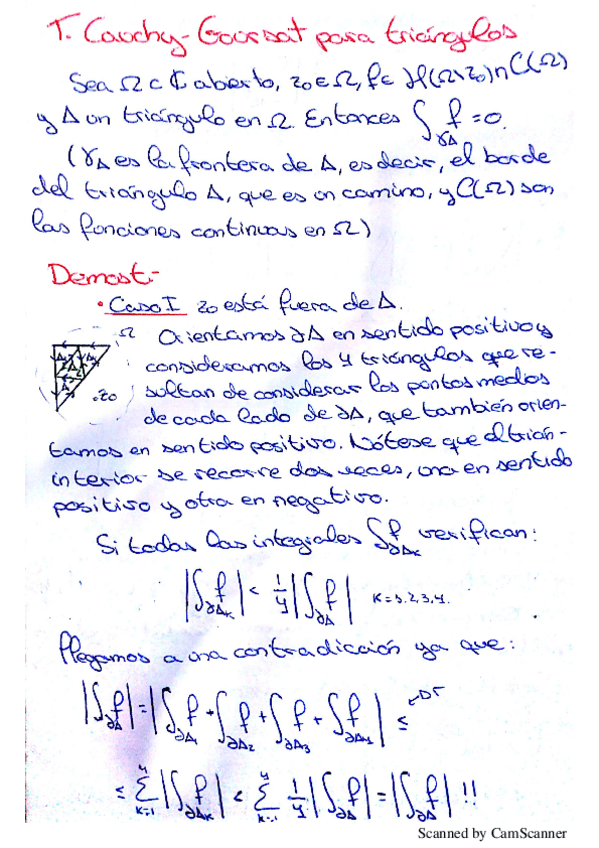 T. Cauchy-Goursat para triángulos
Sea Ω ⊂ ℂ abierto, z₀ ∈ Ω, f ∈ H(Ω\z₀) ∩ C(Ω)
y Δ un triángulo en Ω. Entonces ∫_{γΔ} f = 0.
(γΔ es la frontera de Δ, es decir, el borde
del triángulo Δ, que es un camino, y C(Ω) son
las funciones continuas en Ω)
Demost.-
• Caso I z₀ está fuera de Δ.
Ω Orientamos ∂Δ en sentido positivo y
consideramos los 4 triángulos que re-
.z₀ sultan de considerar los puntos medios
de cada lado de ∂Δ, que también orien-
tamos en sentido positivo. Nótese que el trián-
interior se recorre dos veces, una en sentido
positivo y otra en negativo.
Si todas las integrales ∫_{∂Δₖ} f verifican:
|∫_{∂Δₖ} f| < 1/4 |∫_{∂Δ} f| K=1,2,3,4.
Llegamos a una contradicción ya que:
|∫_{∂Δ} f| = |∫_{∂Δ₁} f + ∫_{∂Δ₂} f + ∫_{∂Δ₃} f + ∫_{∂Δ₄} f| ≤ ← DT
≤ Σ_{k=1}^{4} |∫_{∂Δₖ} f| < Σ_{k=1}^{4} 1/4 |∫_{∂Δ} f| = |∫_{∂Δ} f| !!
Scanned by CamScanner